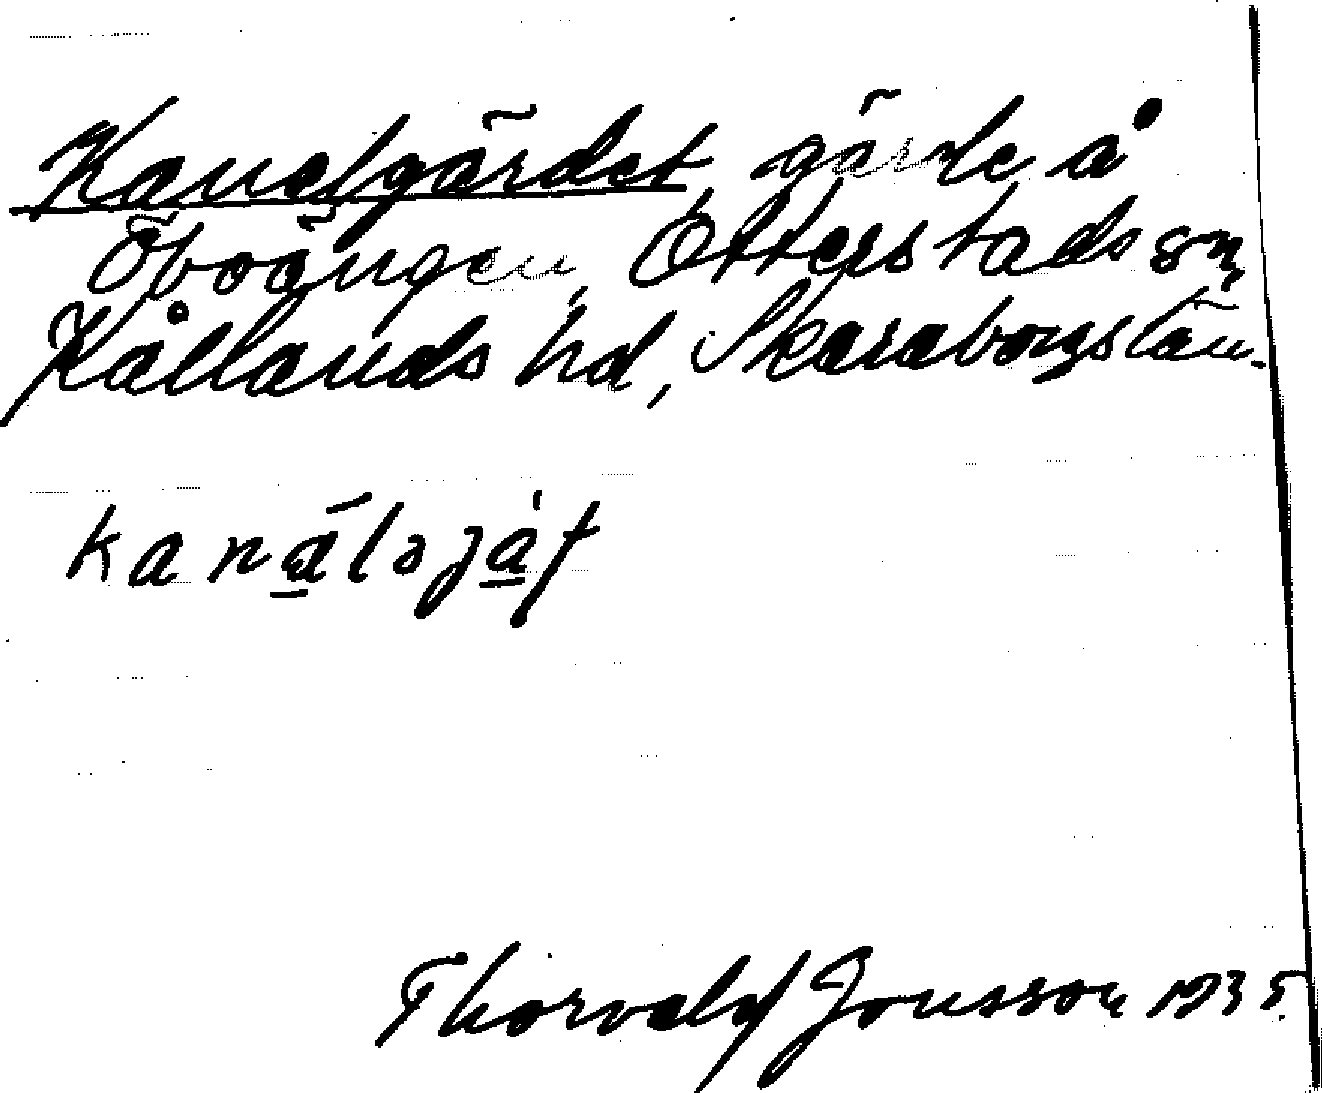 Kanelgärdet, gärde å
Öboängen, Otterstads sn,
Kållands hd, Skaraborgs län.
kanáləjáṭ
Thorvald Jonsson 1935.